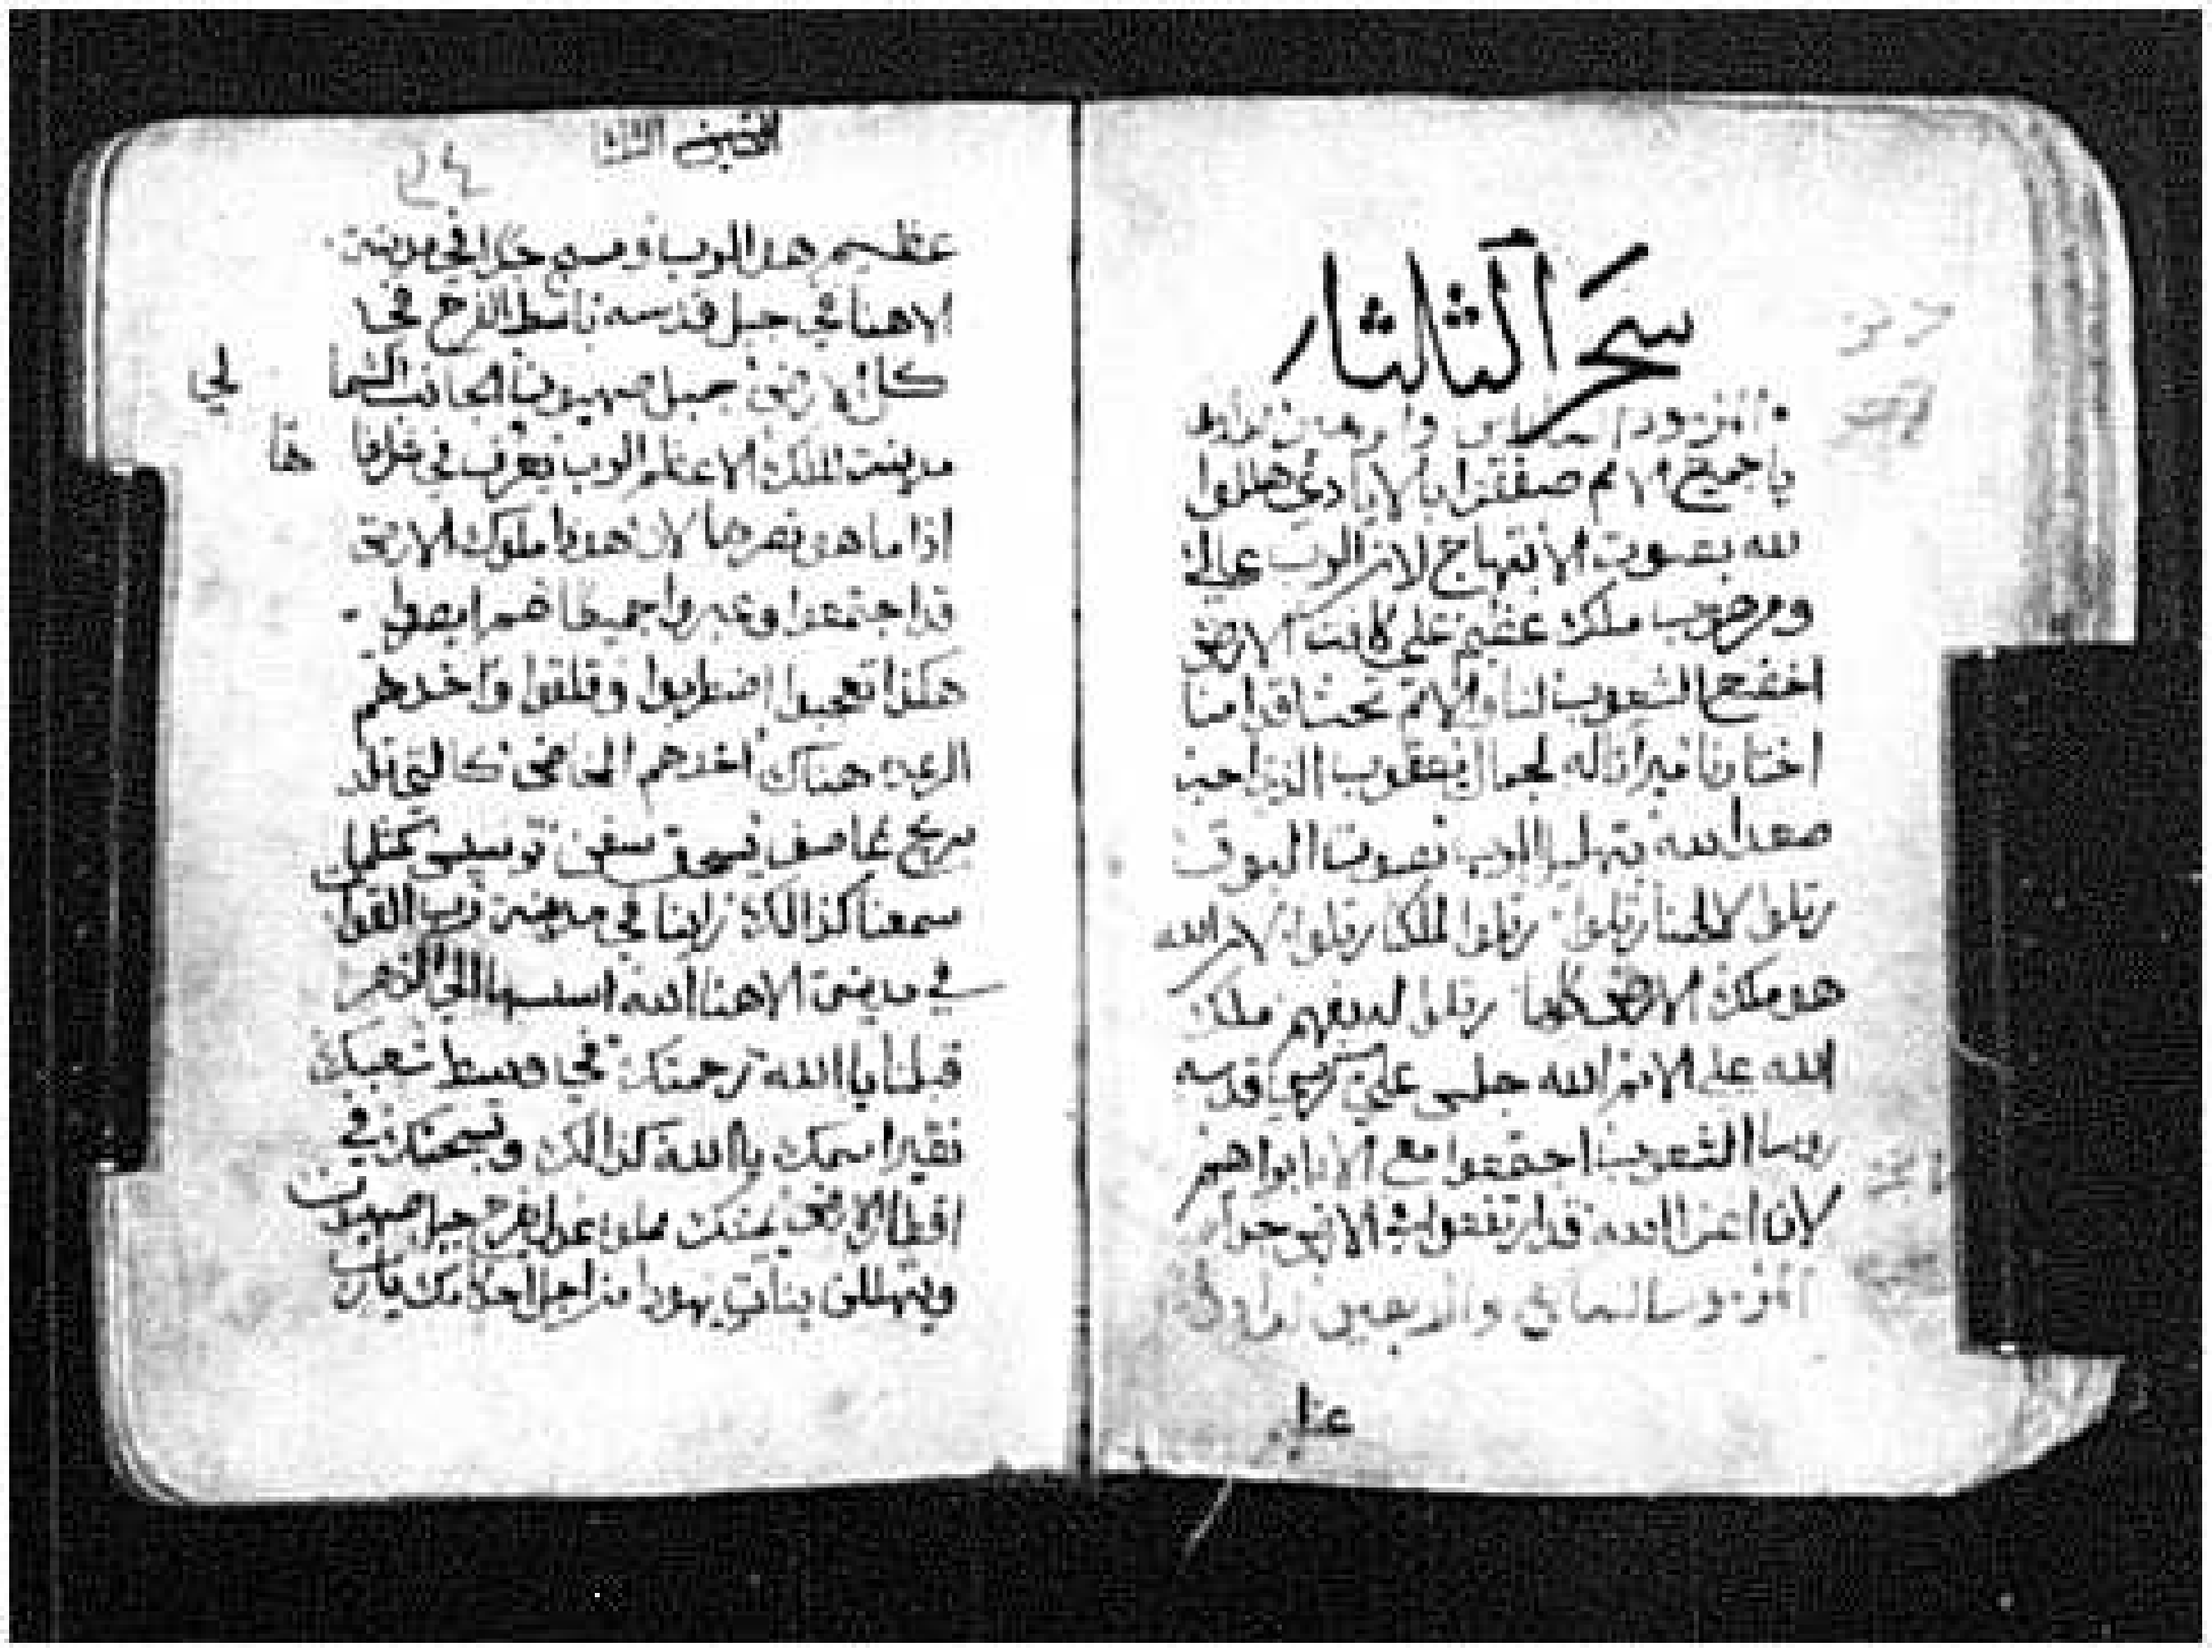 سَحَر الثلثاء
يا جميع الامم صفقوا بالايادي هللوا
لله بصوت الابتهاج لان الرب عالي
ومرهوب ملك عظيم علي كافت الارض
اخضع الشعوب لنا والامم تحت اقدامنا
اختارنا ميراثا له لجمال يعقوب الذي احب
صعد الله بتهليل الرب بصوت البوق
رتلوا لالهنا رتلوا رتلوا لملكنا رتلوا لان الله
هو ملك الارض كلها رتلوا له بفهم ملك
الله علي الامم الله جلس علي كرسي قدسه
روسا الشعوب اجتمعوا مع الاه ابراهيم
لان اعزا الله قد ارتفعوا في الارض جدا
عظيم
عظيم هو الرب ومسبح جدا في مدينة
الاهنا في جبل قدسه باسط الفرح في
كل الارض جبل صهيون الجانب الشما
لي
مدينت الملك الاعظم الرب يعرف في شرفا
ها
اذا ما هو نصرها لان هوذا ملوك الارض
قد اجتمعوا وعبروا جميعا هم ابصروا
هكذا تعجبوا اضطربوا وقلقوا واخذهم
الرعدة هناك اخذهم المخاض كالتي تلد
بريح عاصف تسحق سفن ترسيس كمثلما
سمعنا كذالك راينا في مدينة رب القوات
في مدينة الاهنا الله اسسها الي الدهر
قبلنا يا الله رحمتك في وسط شعبك
نظير اسمك يا الله كذالك وتسبحتك في
اقطار الارض يمينك مملوة عدلا يفرح جبل صهيون
ويتهللن بنات يهوذا من اجل احكامك يارب